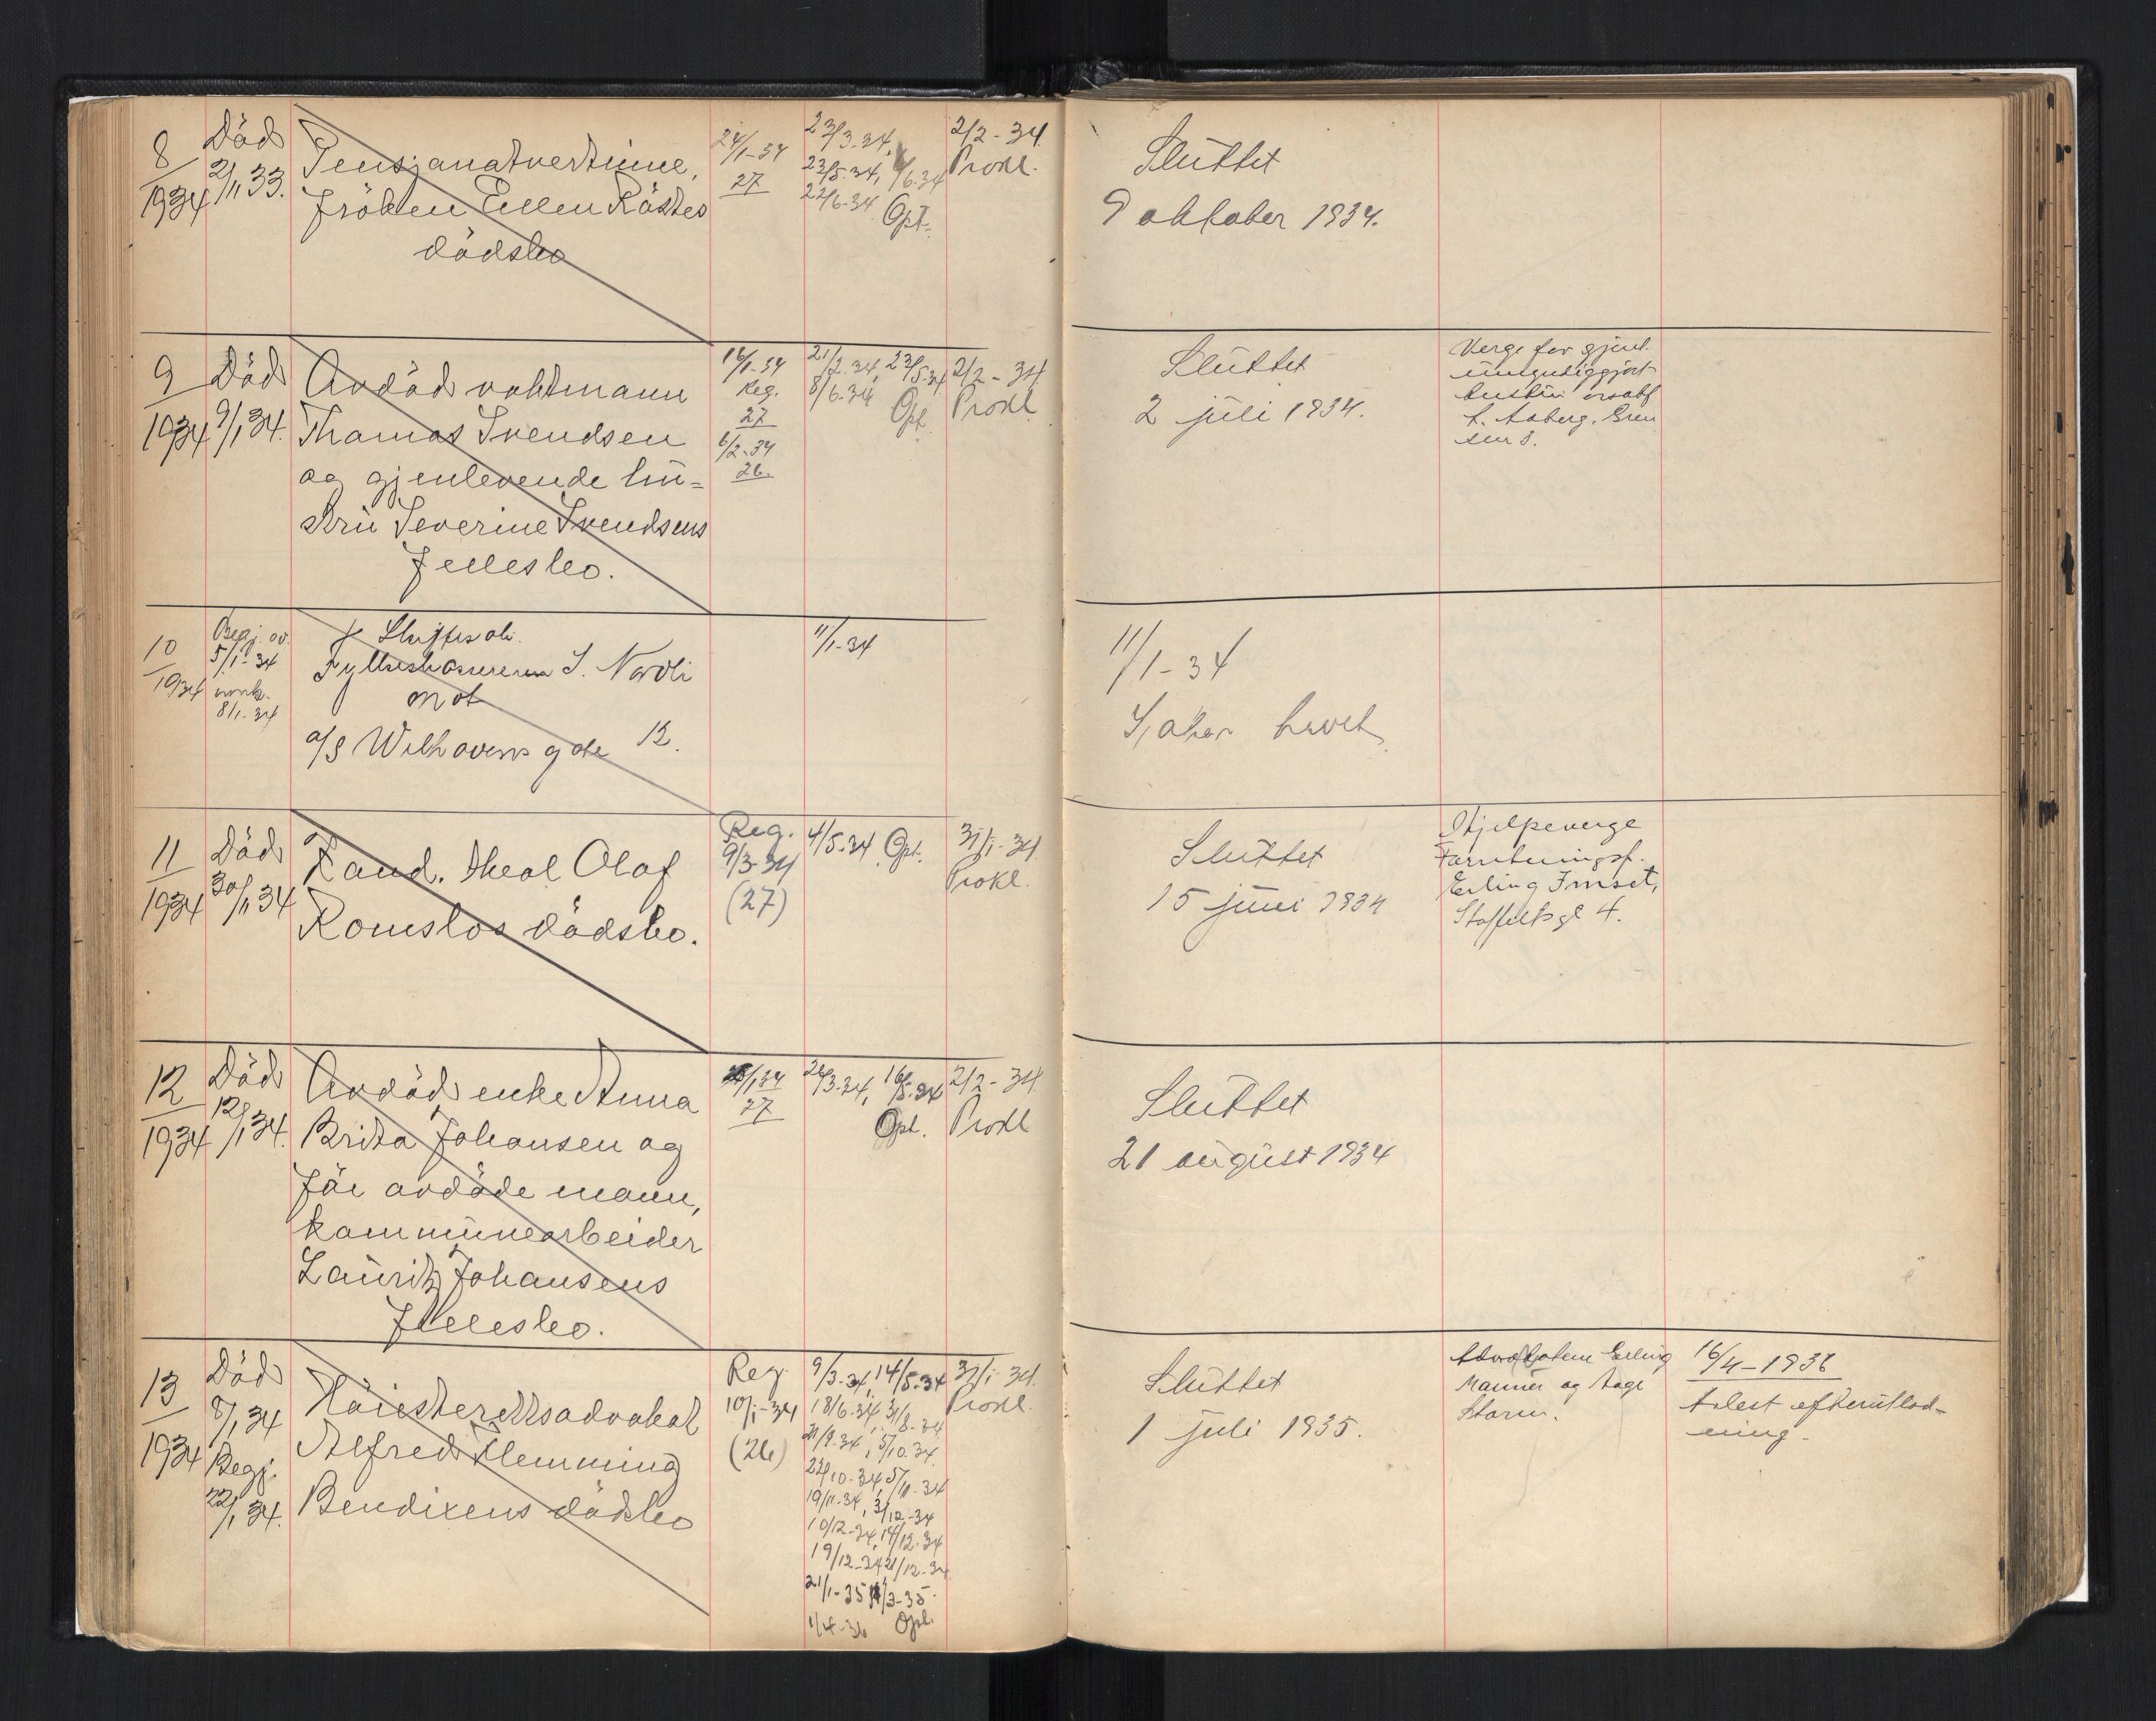 8
1934
Död
2/11 33.
Pensjonatvertinne,
fröken Ellen Röstes
dödsbo
24/1-34
27
23/3.34,
23/5.34, 4/6.34
22/6-34 Opt.
2/2-34
Prokl.
Sluttet
9 oktober 1934.
9
1934
Död
9/1 34.
Avdöd vaktmann
Thomas Svendsen
og gjenlevende hu=
stru Severine Svendsens
fellesbo.
16/1-34
Reg.
27
6/2-34
26.
21/2.34, 23/5.34
8/6.34
Opt.
2/2-34
Prokl.
Sluttet
2 juli 1934.
Verge for gjenl.
umyndiggjort
hustru
t. Aaberg,
10
1934
Begj. av.
5/1-34
8/1-34
Fylkeskassereren S. Nordli
mot
a/s Welhavens gate 12.
11/1-34
11/1-34
Saken hevet
11
1934
Död
30/1 34
Kand. theol Olaf
Romslos dödsbo.
Reg.
9/3-34
(27)
4/5.34 Opt.
31/1-34
Prokl.
Sluttet
15 juni 1934
Hjelpeverge
Forretningsf.
Erling Imset,
Stoffeltsgt 4.
12
1934
Död
12/1 34.
Avdöd enke Anna
Brita Johansen og
för avdöde mann,
kommunearbeider
Lauritz Johansens
fellesbo.
27
26/3.34, 16/5.34
Opt.
2/2-34
Prokl
Sluttet
21 august 1934
13
1934
Död
8/1 34
Begj.
22/1 34.
Höiesterettsadvokat
Alfred Flemming
Bendixens dödsbo
Reg
10/1-34
(26)
9/3-34, 14/5.34
18/6.34, 31/8-34
21/9.34, 5/10.34.
22/10-34, 5/11.34
19/11.34, 3/12-34
10/12-34, 14/12.34
19/12-34 21/12-34
21/1-35 /3-35.
1/4-36 Opt.
31/1-34.
Prokl.
Sluttet
1 juli 1935.
Advokatene Erling
Manner og Aage
Storm.
16/4-1936
avlest efterutlod-
ning.